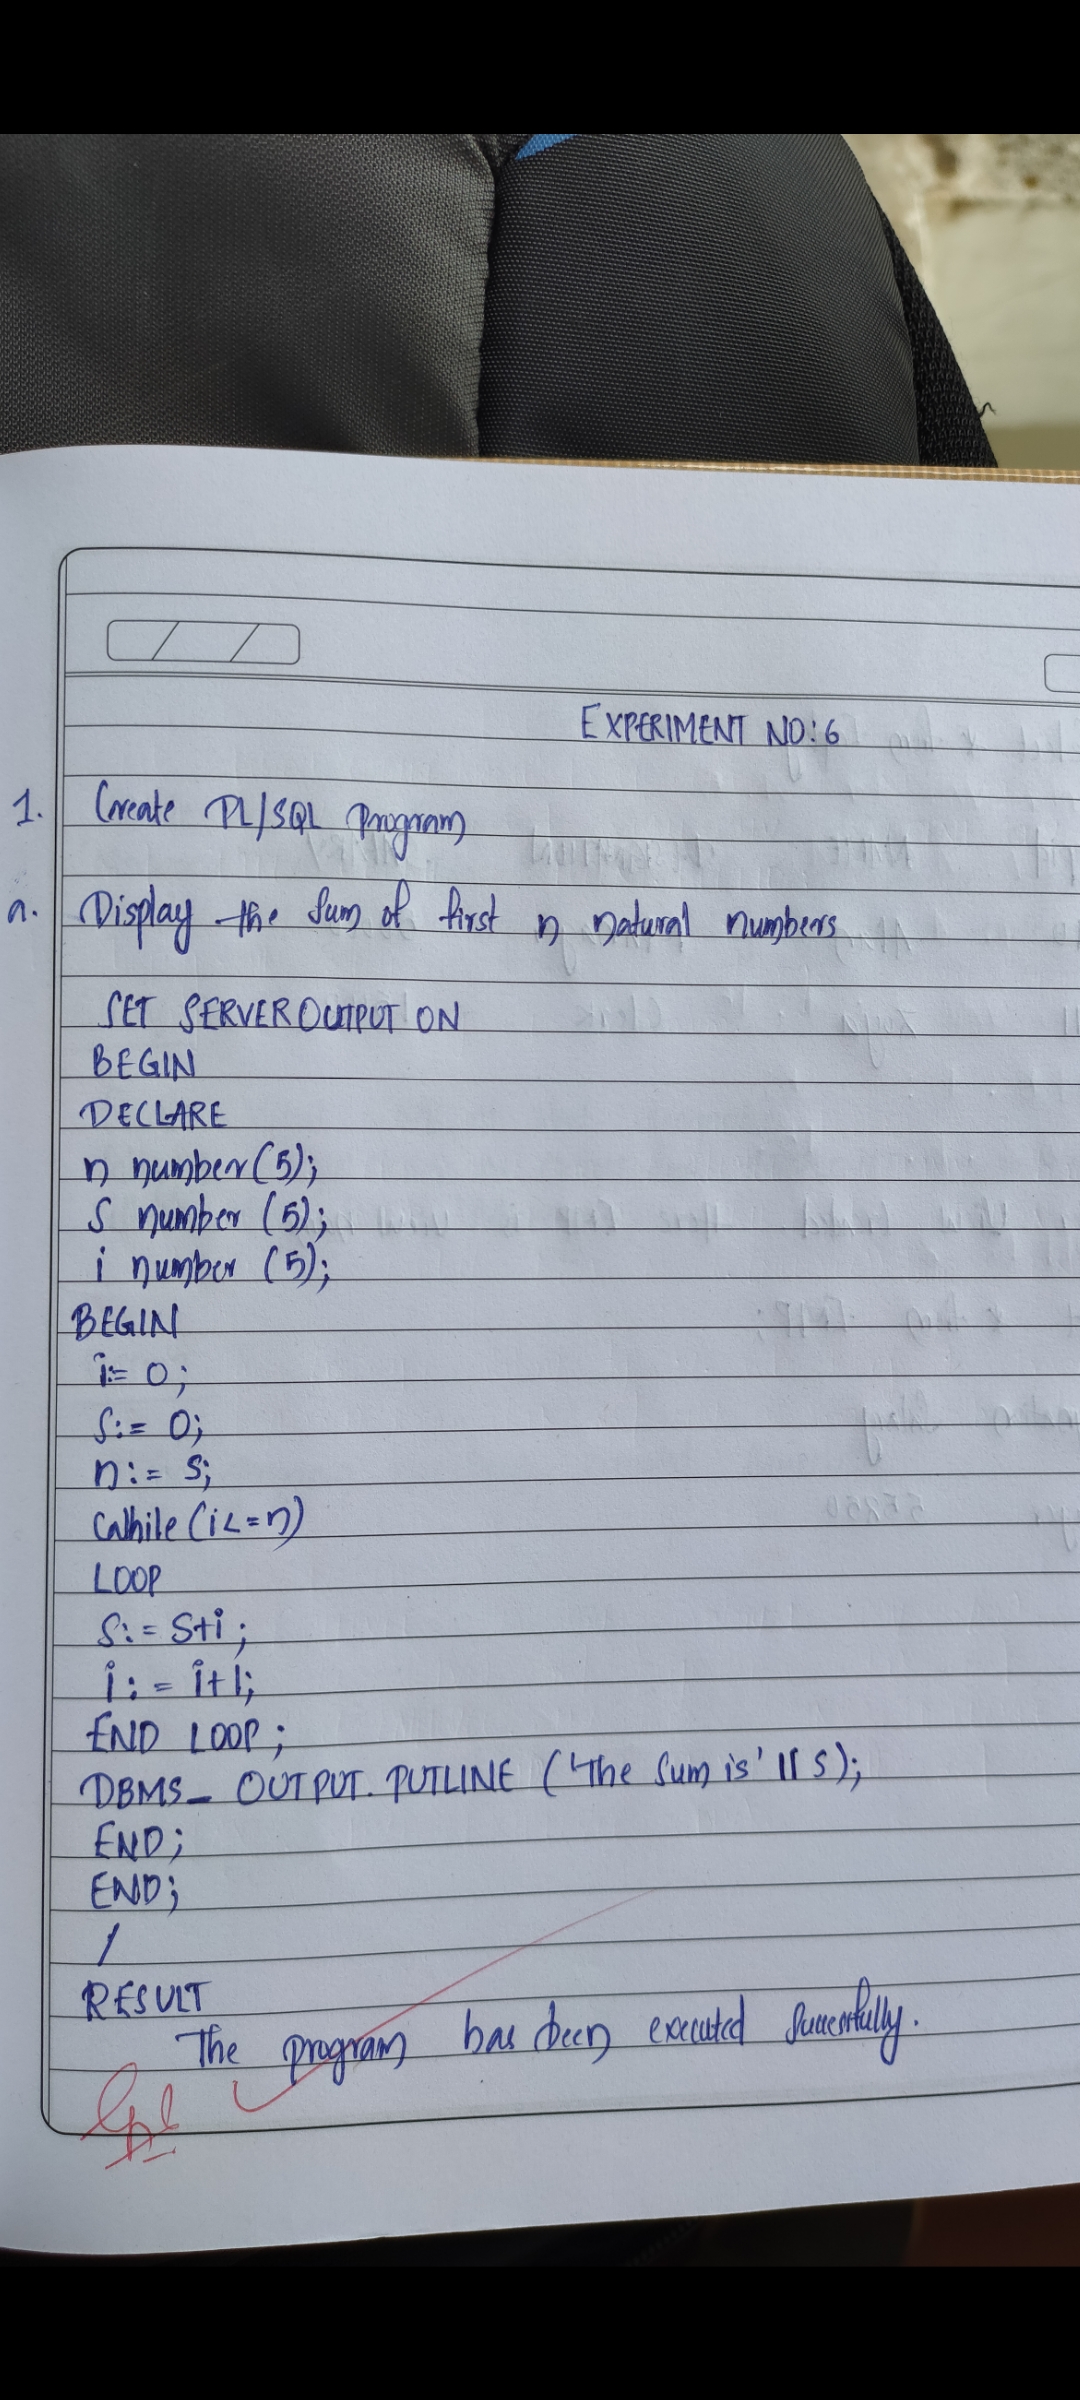 EXPERIMENT NO:6
1. Create PL/SQL Program
a. Display the sum of first n natural numbers
SET SERVEROUTPUT ON
BEGIN
DECLARE
n number(5);
s number (5);
i number (5);
BEGIN
i:= 0;
s:= 0;
n:= 5;
While (i<=n)
LOOP
s:= s+i;
i:= i+1;
END LOOP;
DBMS_ OUTPUT. PUTLINE ('The Sum is' || s);
END;
END;
/
RESULT
The program has been executed successfully.